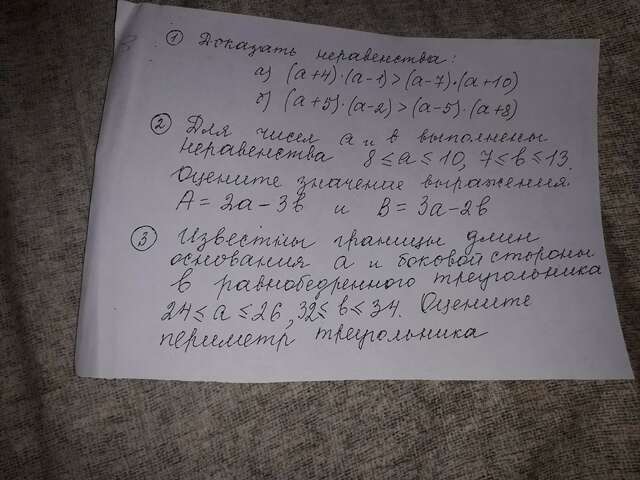 ① Доказать неравенства:
а) (а+4)·(а-1)>(а-7)·(а+10)
б) (а+5)·(а-2)>(а-5)·(а+8)
② Для чисел а и в выполнены
неравенства 8≤а≤10, 7≤в≤13.
Оцените значение выражения.
А=2а-3в и В=3а-2в
③ Известны границы длин
основания а и боковой стороны
в равнобедренного треугольника
24≤а≤26, 32≤в≤34. Оцените
периметр треугольника